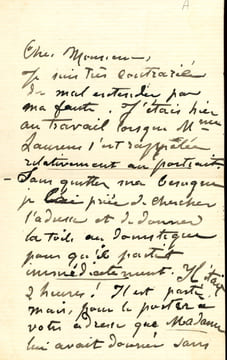 A
Cher Monsieur,
Je suis très contrarié
du malentendu par
ma faute. J'étais hier
au travail lorsque Mme
Laurens s'est rappelée
relativement au portrait.
– Sans quitter ma besogne
je l'ai priée de chercher
l'adresse et de donner
la toile au domestique
pour qu'il partît
immédiatement. Il était
2 heures ! Il est parti
mais, pour le porter à
votre adresse que Madame
lui avait donnée sans